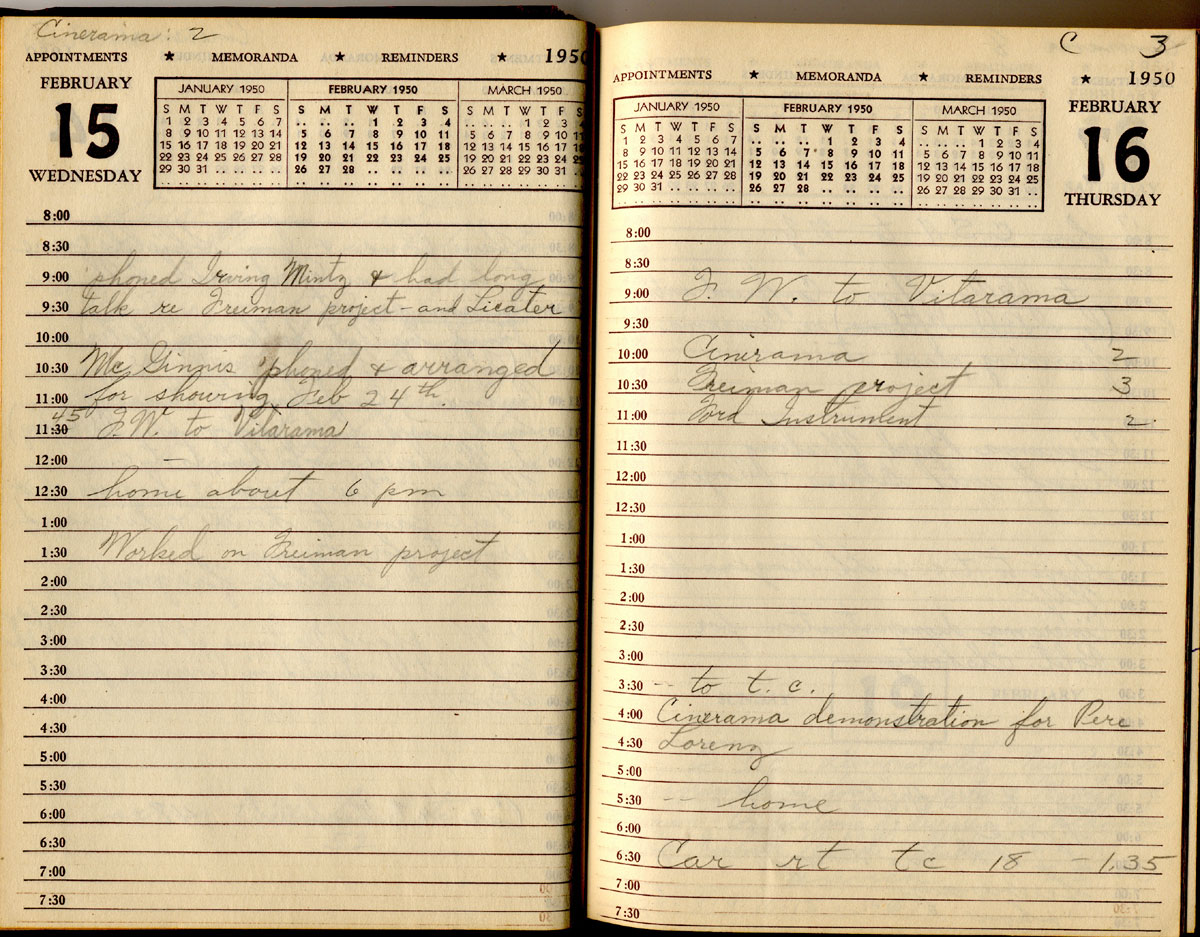 Cinerama: 2
APPOINTMENTS ★ MEMORANDA ★ REMINDERS ★ 1950
FEBRUARY
15
WEDNESDAY
JANUARY 1950
S M T W T F S
1 2 3 4 5 6 7
8 9 10 11 12 13 14
15 16 17 18 19 20 21
22 23 24 25 26 27 28
29 30 31 .. .. .. ..
FEBRUARY 1950
S M T W T F S
.. .. .. 1 2 3 4
5 6 7 8 9 10 11
12 13 14 15 16 17 18
19 20 21 22 23 24 25
26 27 28 .. .. .. ..
MARCH 1950
S M T W T F S
.. .. .. 1 2 3 4
5 6 7 8 9 10 11
12 13 14 15 16 17 18
19 20 21 22 23 24 25
26 27 28 29 30 31 ..
8:00
8:30
9:00 phoned Irving Mintz & had long
9:30 talk re Freiman project - and Licater
10:00
10:30 Mc Ginnis 'phoned & arranged
11:00 for showing Feb 24th.
11:30 45 J.W. to Vitarama
12:00
12:30 home about 6 pm
1:00
1:30 Worked on Freiman project
2:00
2:30
3:00
3:30
4:00
4:30
5:00
5:30
6:00
6:30
7:00
7:30
C 3
APPOINTMENTS ★ MEMORANDA ★ REMINDERS ★ 1950
JANUARY 1950
S M T W T F S
1 2 3 4 5 6 7
8 9 10 11 12 13 14
15 16 17 18 19 20 21
22 23 24 25 26 27 28
29 30 31 .. .. .. ..
FEBRUARY 1950
S M T W T F S
.. .. .. 1 2 3 4
5 6 7 8 9 10 11
12 13 14 15 16 17 18
19 20 21 22 23 24 25
26 27 28 .. .. .. ..
MARCH 1950
S M T W T F S
.. .. .. 1 2 3 4
5 6 7 8 9 10 11
12 13 14 15 16 17 18
19 20 21 22 23 24 25
26 27 28 29 30 31 ..
FEBRUARY
16
THURSDAY
8:00
8:30
9:00 J. W. to Vitarama
9:30
10:00 Cinerama 2
10:30 Freiman project 3
11:00 Ford Instrument 2
11:30
12:00
12:30
1:00
1:30
2:00
2:30
3:00
3:30 -- to t. c.
4:00 Cinerama demonstration for Pere
4:30 Lorenz
5:00
5:30 -- home
6:00
6:30 Car rt tc 18 - 1.35
7:00
7:30